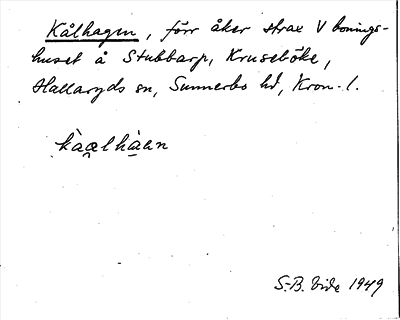 Kålhagen, förr åker strax V bonings-
huset å Stubbarp, Krusebőke,
Hallaryds sn, Sunnerbo hd, Kron. l.
kàalhàan
S.-B. Vide 1949